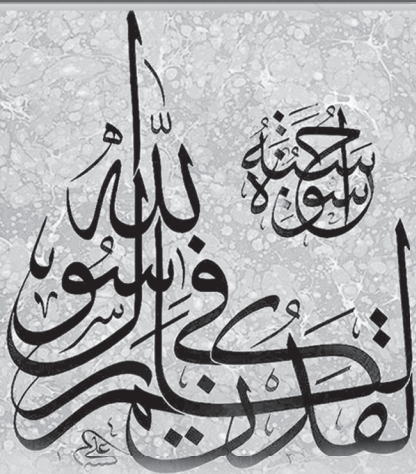 لقد كان لكم في رسول الله
اسوة حسنة